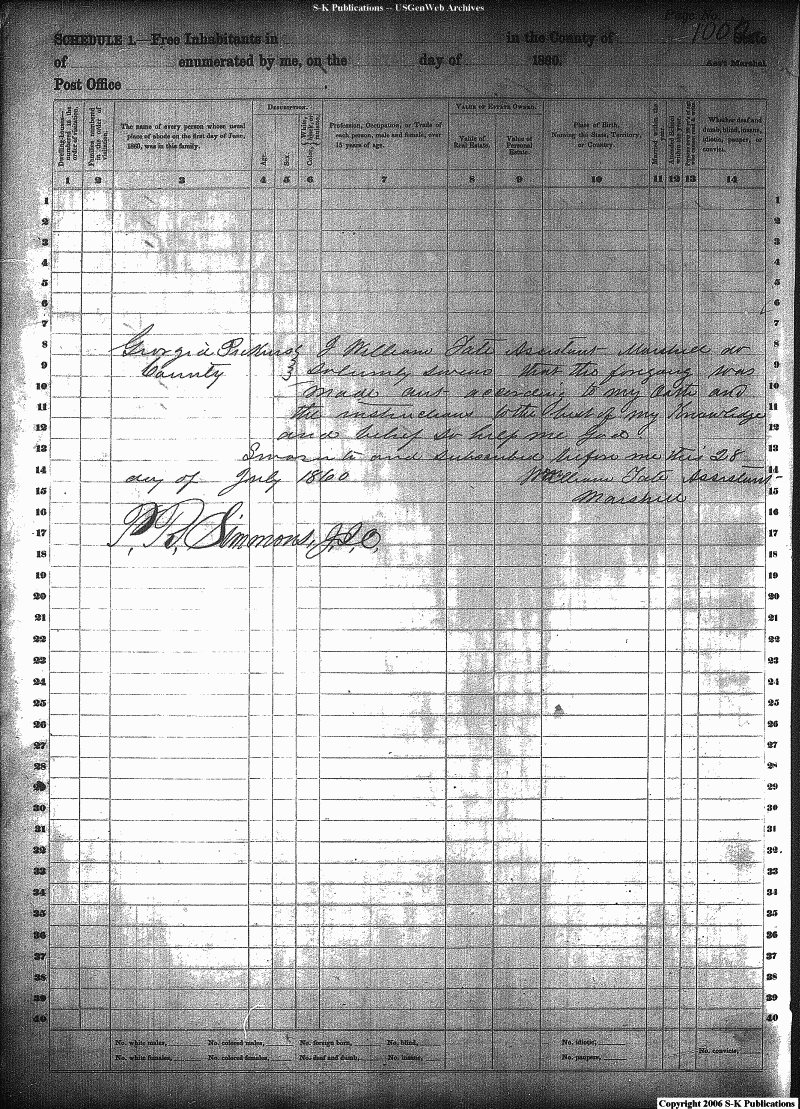 S-K Publications -- USGenWeb Archives
Page No.
1000
SCHEDULE 1.—Free Inhabitants in in the County of State
of enumerated by me, on the day of 1860. Ass't Marshal
Post Office
Dwelling-houses— numbered in the order of visitation.
Families numbered in the order of visitation.
The name of every person whose usual place of abode on the first day of June, 1860, was in this family.
DESCRIPTION.
Age.
Sex.
Color, White, black, or mulatto.
Profession, Occupation, or Trade of each person, male and female, over 15 years of age.
VALUE OF ESTATE OWNED.
Value of Real Estate.
Value of Personal Estate.
Place of Birth, Naming the State, Territory, or Country.
Married within the year.
Attended School within the year.
Whether deaf and dumb, blind, insane, idiotic, pauper, or convict.
1 2 3 4 5 6 7 8 9 10 11 12 13 14
1 1
2 2
3 3
4 4
5 5
6 6
7 7
8 Georgia Pickens I William Tate Assistant Marshill do 8
9 County solumly swear that the forgang was 9
10 made out according to my Oath and 10
11 the instructions to the best of my Knowledge 11
12 and belief so help me God 12
13 Sworn to and subscribed before me this 28 13
14 day of July 1860 William Tate Assistant 14
15 Marshill 15
16 16
17 P. R. Simmons, J.I.C. 17
18 18
19 19
20 20
21 21
22 22
23 23
24 24
25 25
26 26
27 27
28 28
29 29
30 30
31 31
32 32
33 33
34 34
35 35
36 36
37 37
38 38
39 39
40 40
No. white males, No. colored males, No. foreign born, No. blind, No. idiotic,
No. white females, No. colored females, No. deaf and dumb, No. insane, No. paupers, No. convicts,
Copyright 2006 S-K Publications